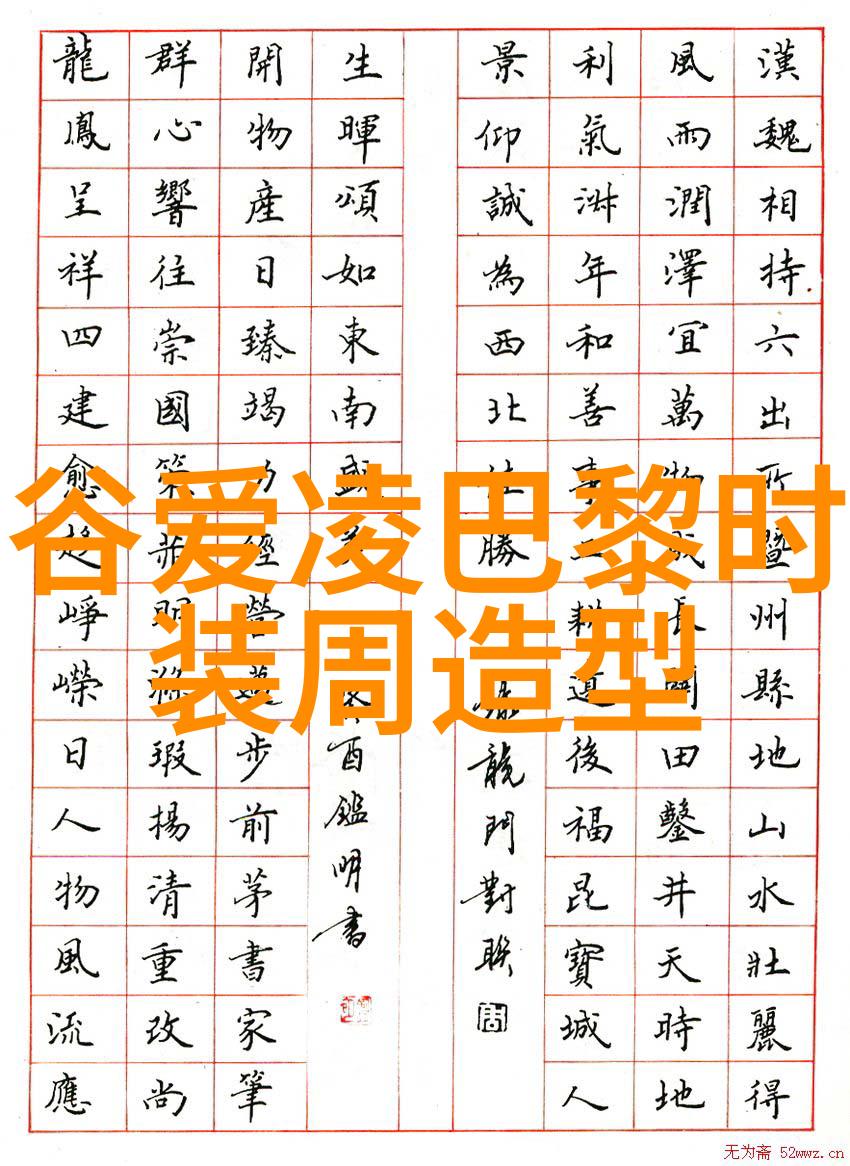 谷爱凌巴黎时
装周造型
漢魏相持六出所暨州縣地山水壯麗得
風雨潤澤宜萬物成長田鑿井天時地
利氣年和善事耕後福昆寶城人
景仰誠為西北佳勝
龍門對聯
生暉頌如東南盛美
酉鑑明書
開物產日臻竭力經營邁步前茅書家筆
群心響往崇國策明滌瑕揚清重改尚
龍鳳呈祥四建愈趨崢嶸日人物風流應
无为斋 52wwz.cn